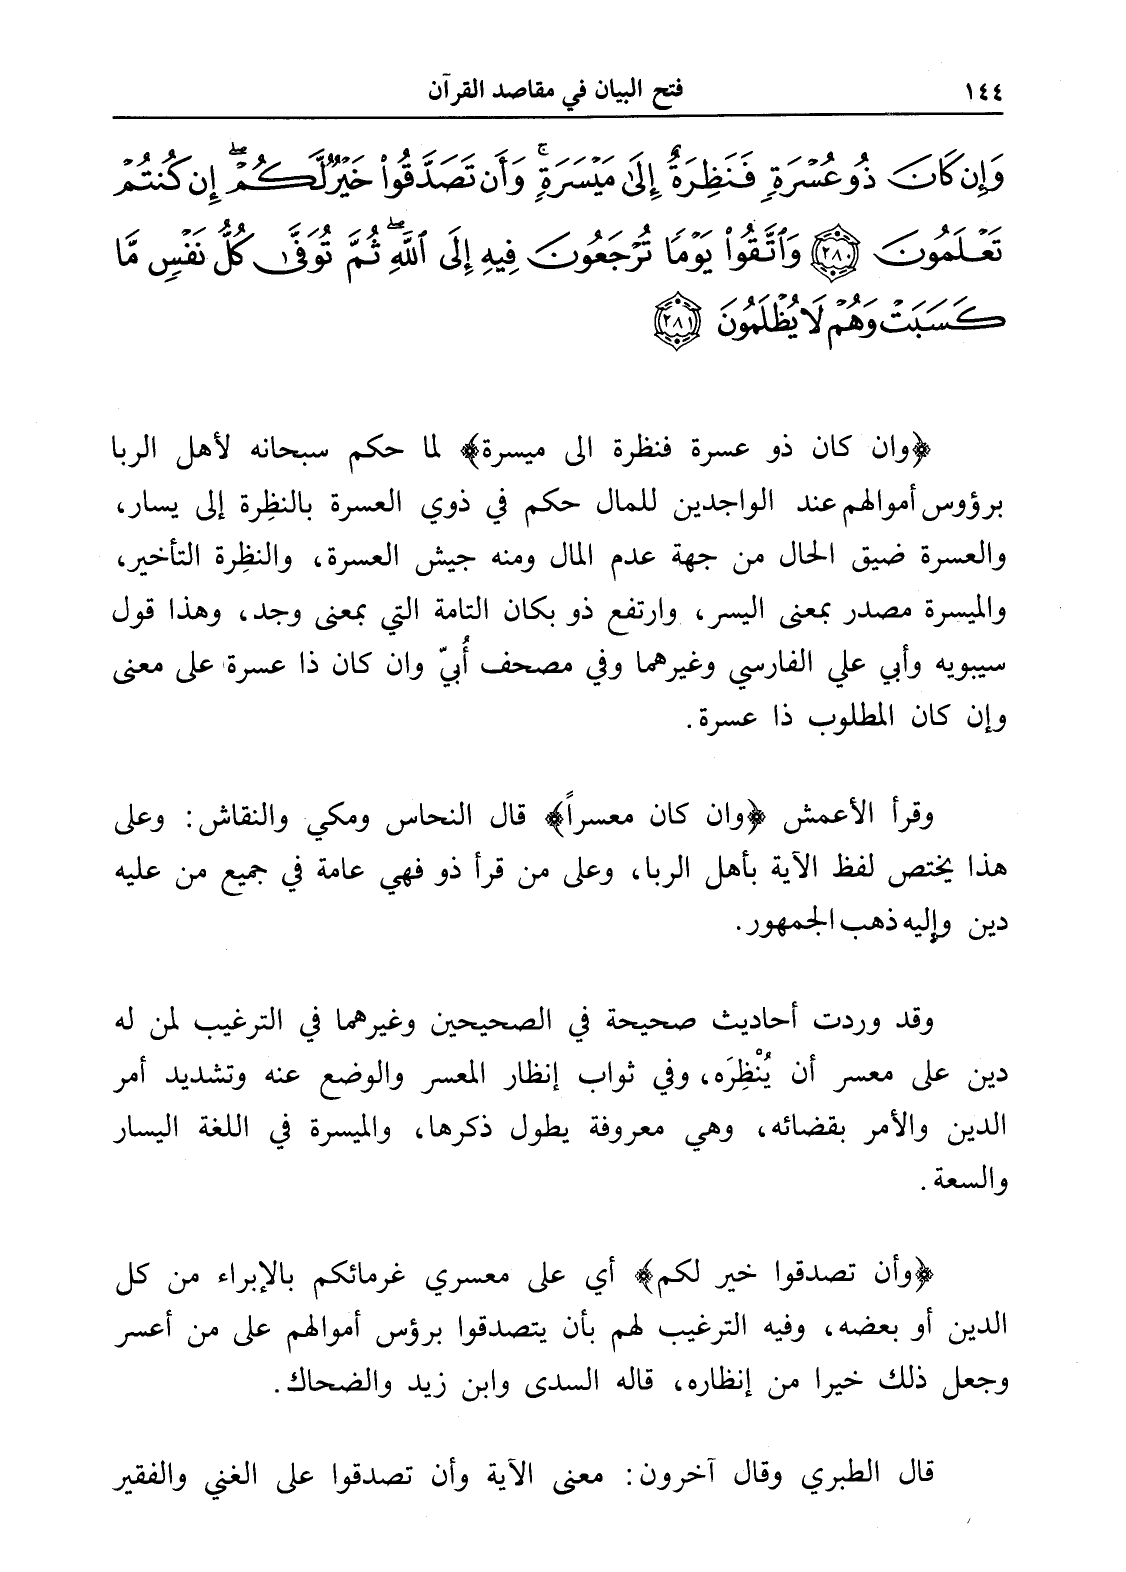 ١٤٤ فتح البيان في مقاصد القرآن
وَإِن كَانَ ذُو عُسْرَةٍ فَنَظِرَةٌ إِلَىٰ مَيْسَرَةٍ ۚ وَأَن تَصَدَّقُوا۟ خَيْرٌ لَّكُمْ ۖ إِن كُنتُمْ
تَعْلَمُونَ ﴿٢٨٠﴾ وَٱتَّقُوا۟ يَوْمًا تُرْجَعُونَ فِيهِ إِلَى ٱللَّهِ ۖ ثُمَّ تُوَفَّىٰ كُلُّ نَفْسٍ مَّا
كَسَبَتْ وَهُمْ لَا يُظْلَمُونَ ﴿٢٨١﴾
﴿وان كان ذو عسرة فنظرة الى ميسرة﴾ لما حكم سبحانه لأهل الربا
برؤوس أموالهم عند الواجدين للمال حكم في ذوي العسرة بالنظِرة إلى يسار،
والعسرة ضيق الحال من جهة عدم المال ومنه جيش العسرة، والنظِرة التأخير،
والميسرة مصدر بمعنى اليسر، وارتفع ذو بكان التامة التي بمعنى وجد، وهذا قول
سيبويه وأبي علي الفارسي وغيرهما وفي مصحف أُبيّ وان كان ذا عسرة على معنى
وإن كان المطلوب ذا عسرة.
وقرأ الأعمش ﴿وان كان معسراً﴾ قال النحاس ومكي والنقاش: وعلى
هذا يختص لفظ الآية بأهل الربا، وعلى من قرأ ذو فهي عامة في جميع من عليه
دين وإليه ذهب الجمهور.
وقد وردت أحاديث صحيحة في الصحيحين وغيرهما في الترغيب لمن له
دين على معسر أن يُنْظِرَه، وفي ثواب إنظار المعسر والوضع عنه وتشديد أمر
الدين والأمر بقضائه، وهي معروفة يطول ذكرها، والميسرة في اللغة اليسار
والسعة.
﴿وأن تصدقوا خير لكم﴾ أي على معسري غرمائكم بالإبراء من كل
الدين أو بعضه، وفيه الترغيب لهم بأن يتصدقوا برؤس أموالهم على من أعسر
وجعل ذلك خيرا من إنظاره، قاله السدى وابن زيد والضحاك.
قال الطبري وقال آخرون: معنى الآية وأن تصدقوا على الغني والفقير